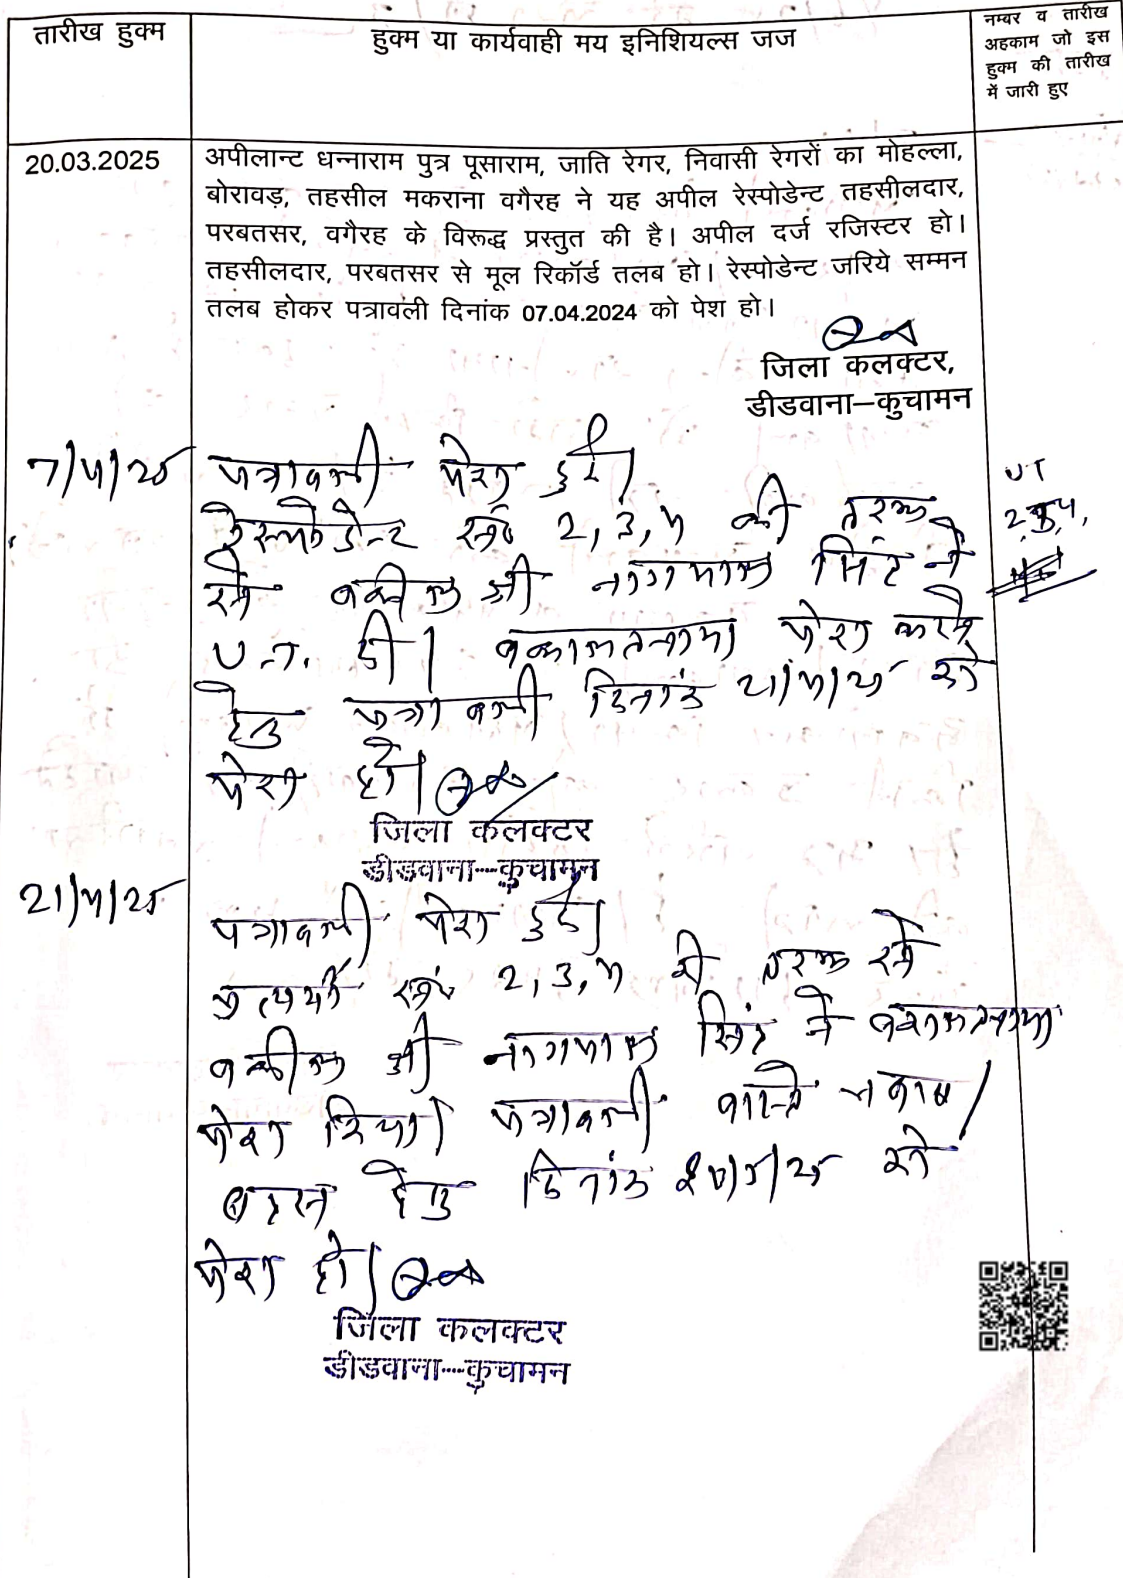 तारीख हुक्म
हुक्म या कार्यवाही मय इनिशियल्स जज
नम्बर व तारीख
अहकाम जो इस
हुक्म की तारीख
में जारी हुए
20.03.2025
अपीलान्ट धन्नाराम पुत्र पूसाराम, जाति रेगर, निवासी रेगरों का मोहल्ला,
बोरावड़, तहसील मकराना वगैरह ने यह अपील रेस्पोडेन्ट तहसीलदार,
परबतसर, वगैरह के विरूद्ध प्रस्तुत की है। अपील दर्ज रजिस्टर हो।
तहसीलदार, परबतसर से मूल रिकॉर्ड तलब हो। रेस्पोडेन्ट जरिये सम्मन
तलब होकर पत्रावली दिनांक 07.04.2024 को पेश हो।
जिला कलक्टर,
डीडवाना–कुचामन
7/4/25
पत्रावली पेश हुई।
रेस्पोडेन्ट सं० 2, 3, 4 की तरफ
से वकील श्री नागपाल सिंह ने
U.T. दी। वकालतनामा पेश करने
हेतु पत्रावली दिनांक 21/4/25 को
पेश हो।
UT
जिला कलक्टर
डीडवाना---कुचामन
21/4/25
पत्रावली पेश हुई।
प्रत्यर्थी सं० 2, 3, 4 की तरफ से
वकील श्री नागपाल सिंह ने वकालतनामा
पेश किया। पत्रावली वास्ते जवाब/
बहस हेतु दिनांक /5/25 को
पेश हो।
जिला कलक्टर
डीडवाना---कुचामन